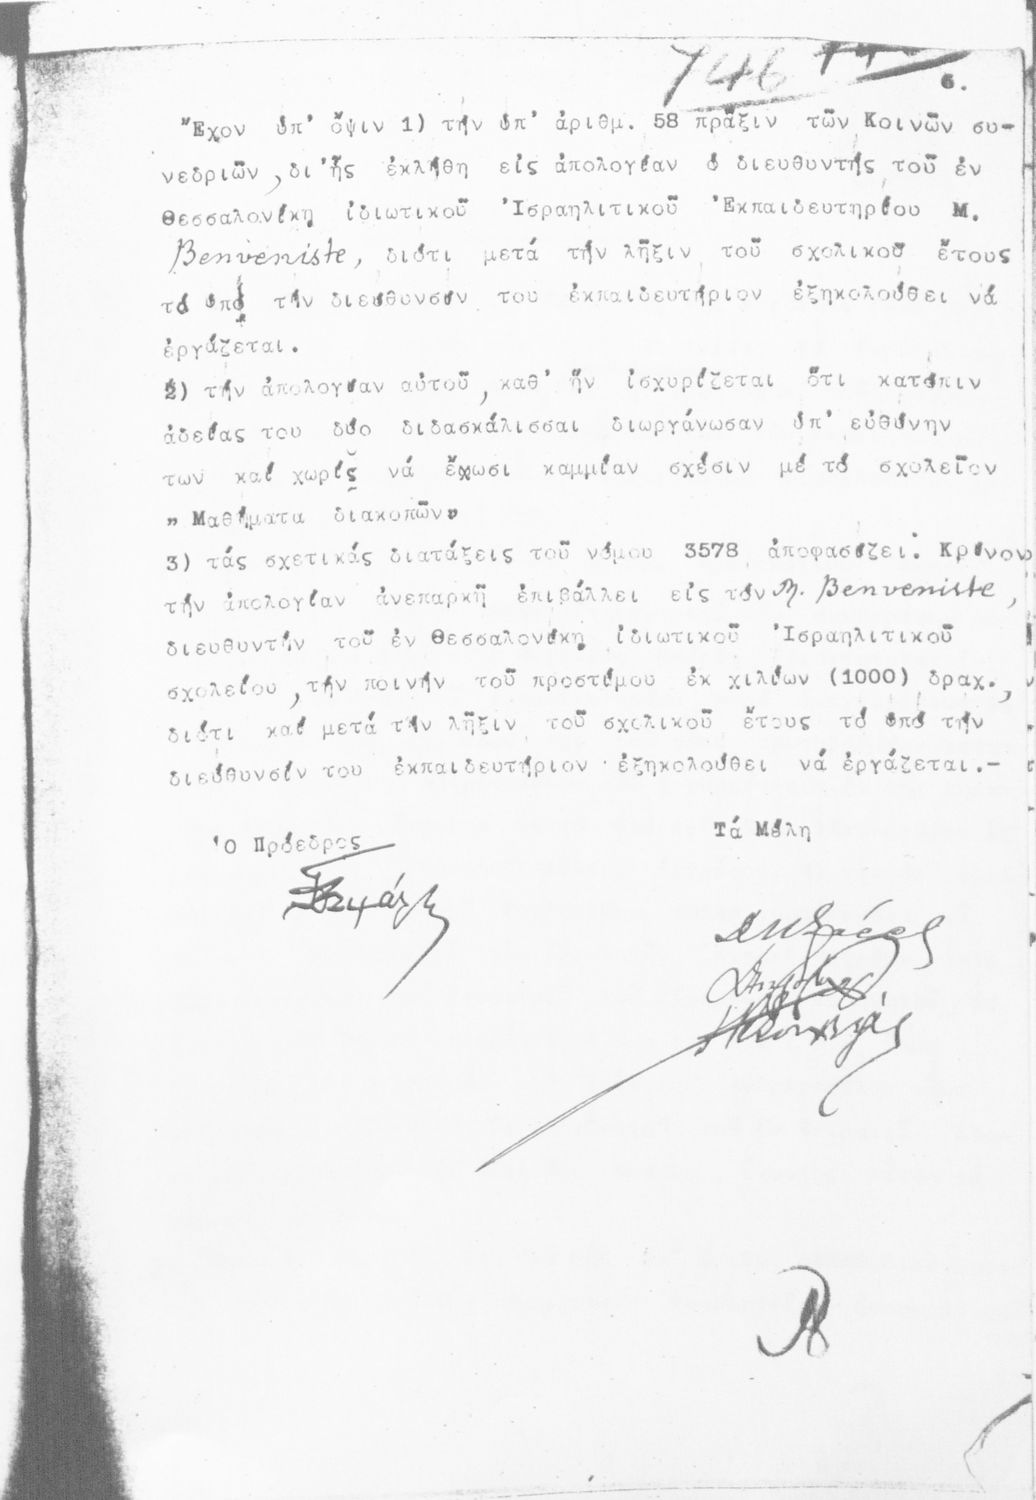 746
6.
Ἔχον ὑπ' ὄψιν 1) τήν ὑπ' ἀριθμ. 58 πρᾶξιν τῶν Κοινῶν συ-
νεδριῶν, δι' ἧς ἐκλήθη εἰς ἀπολογίαν ὁ διευθυντής τοῦ ἐν
Θεσσαλονίκῃ ἰδιωτικοῦ Ἰσραηλιτικοῦ Ἐκπαιδευτηρίου Μ.
Benveniste, διότι μετά τήν λῆξιν τοῦ σχολικοῦ ἔτους
τό ὑπό τήν διεύθυνσίν του ἐκπαιδευτήριον ἐξηκολούθει νά
ἐργάζεται.
2) τήν ἀπολογίαν αὐτοῦ, καθ' ἥν ἰσχυρίζεται ὅτι κατόπιν
ἀδείας του δύο διδασκάλισσαι διωργάνωσαν ὑπ' εὐθύνην
των καί χωρίς νά ἔχωσι καμμίαν σχέσιν μέ τό σχολεῖον
"Μαθήματα διακοπῶν"
3) τάς σχετικάς διατάξεις τοῦ νόμου 3578 ἀποφασίζει: Κρίνον
τήν ἀπολογίαν ἀνεπαρκῆ ἐπιβάλλει εἰς τόν M. Benveniste,
διευθυντήν τοῦ ἐν Θεσσαλονίκῃ ἰδιωτικοῦ Ἰσραηλιτικοῦ
σχολείου, τήν ποινήν τοῦ προστίμου ἐκ χιλίων (1000) δραχ.,
διότι καί μετά τήν λῆξιν τοῦ σχολικοῦ ἔτους τό ὑπό τήν
διεύθυνσίν του ἐκπαιδευτήριον ἐξηκολούθει νά ἐργάζεται.-
Ὁ Πρόεδρος
Τά Μέλη